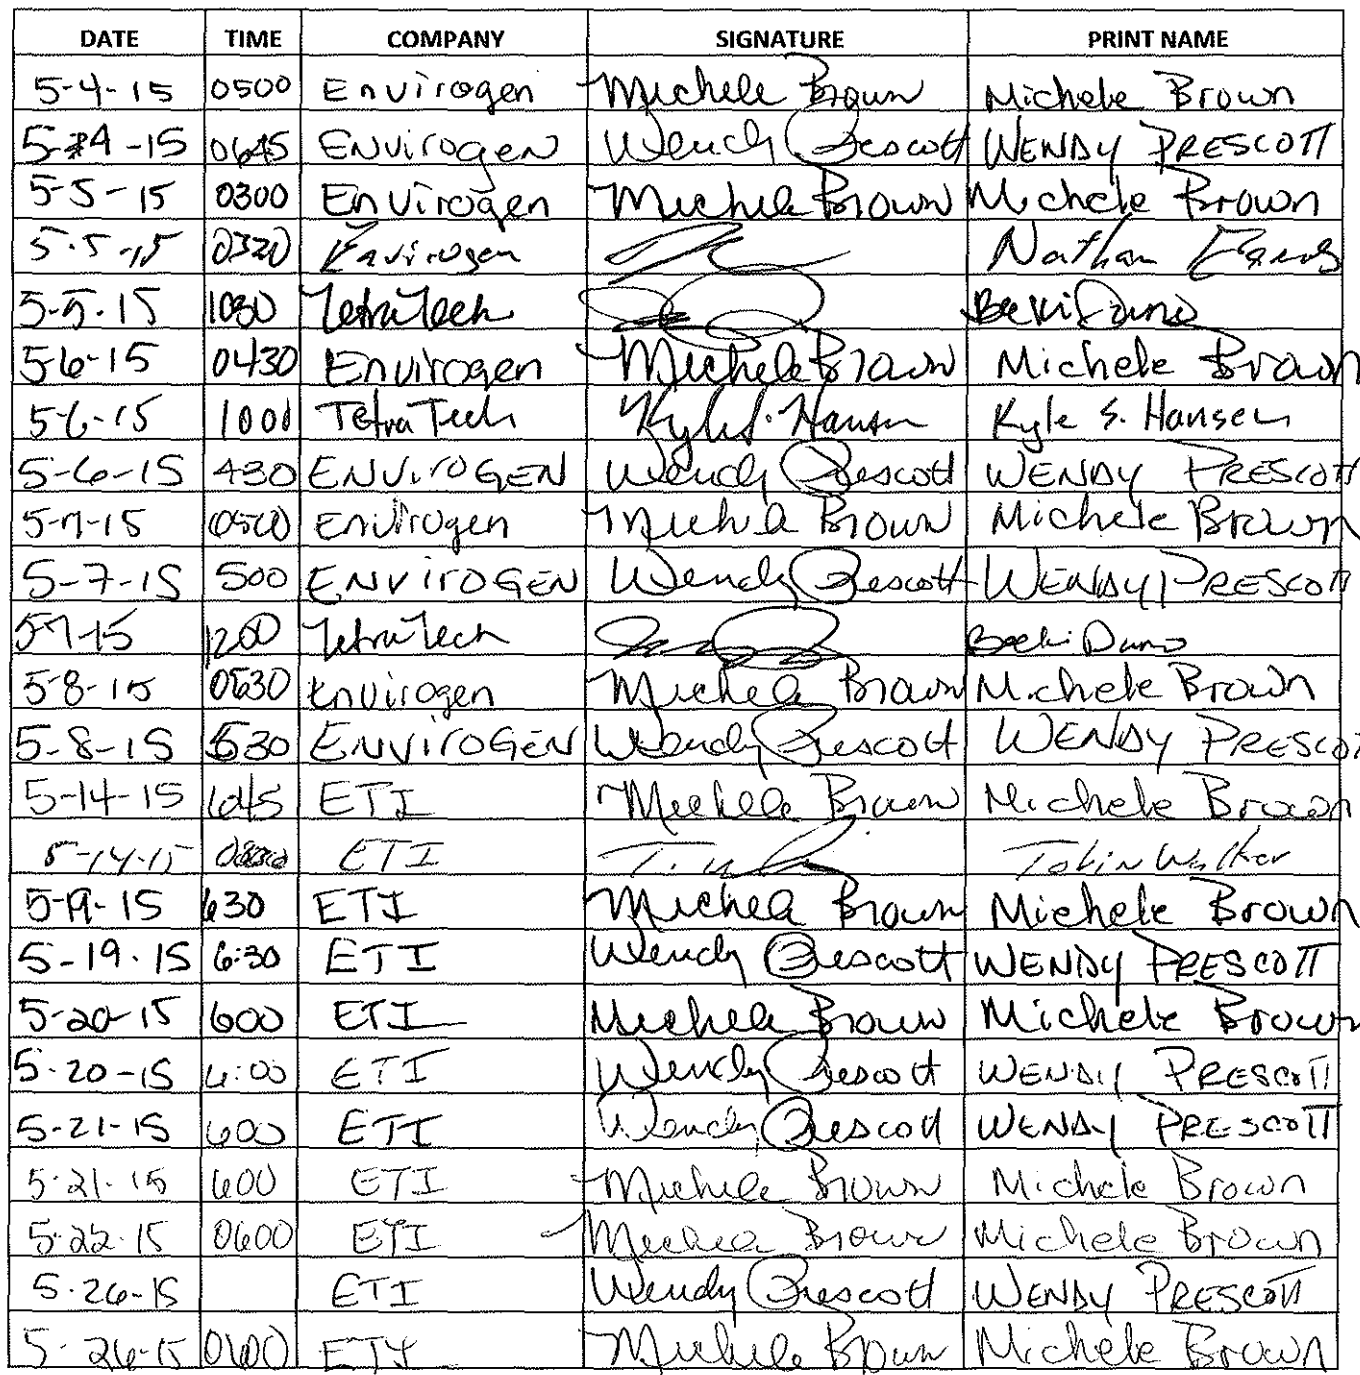 DATE TIME COMPANY SIGNATURE PRINT NAME
5-4-15 0500 Envirogen Michele Brown Michele Brown
5-4-15 0645 ENVirogen Wendy Prescott WENDY PRESCOTT
5-5-15 0300 Envirogen Michele Brown Michele Brown
5-5-15 0320 Envirogen Nathan
5-5-15 1030 TetraTech Becki Dano
5-6-15 0430 Envirogen Michele Brown Michele Brown
5-6-15 1000 Tetra Tech Kyle S. Hansen Kyle S. Hansen
5-6-15 430 ENVirOGEN Wendy Prescott WENDY PRESCOTT
5-7-15 0500 Envirogen Michele Brown Michele Brown
5-7-15 500 ENVirOGEN Wendy Prescott WENDY PRESCOTT
5-7-15 1200 TetraTech Becki Dano
5-8-15 0530 Envirogen Michele Brown Michele Brown
5-8-15 530 ENVirOGEN Wendy Prescott WENDY PRESCOT
5-14-15 645 ETI Michele Brown Michele Brown
5-14-15 ETI Tobin Walker
5-19-15 630 ETI Michele Brown Michele Brown
5-19-15 6:30 ETI Wendy Prescott WENDY PRESCOTT
5-20-15 600 ETI Michele Brown Michele Brown
5-20-15 6:00 ETI Wendy Prescott WENDY PRESCOTT
5-21-15 600 ETI Wendy Prescott WENDY PRESCOTT
5-21-15 600 ETI Michele Brown Michele Brown
5-22-15 0600 ETI Michele Brown Michele Brown
5-26-15 ETI Wendy Prescott WENDY PRESCOTT
5-26-15 0600 ETI Michele Brown Michele Brown